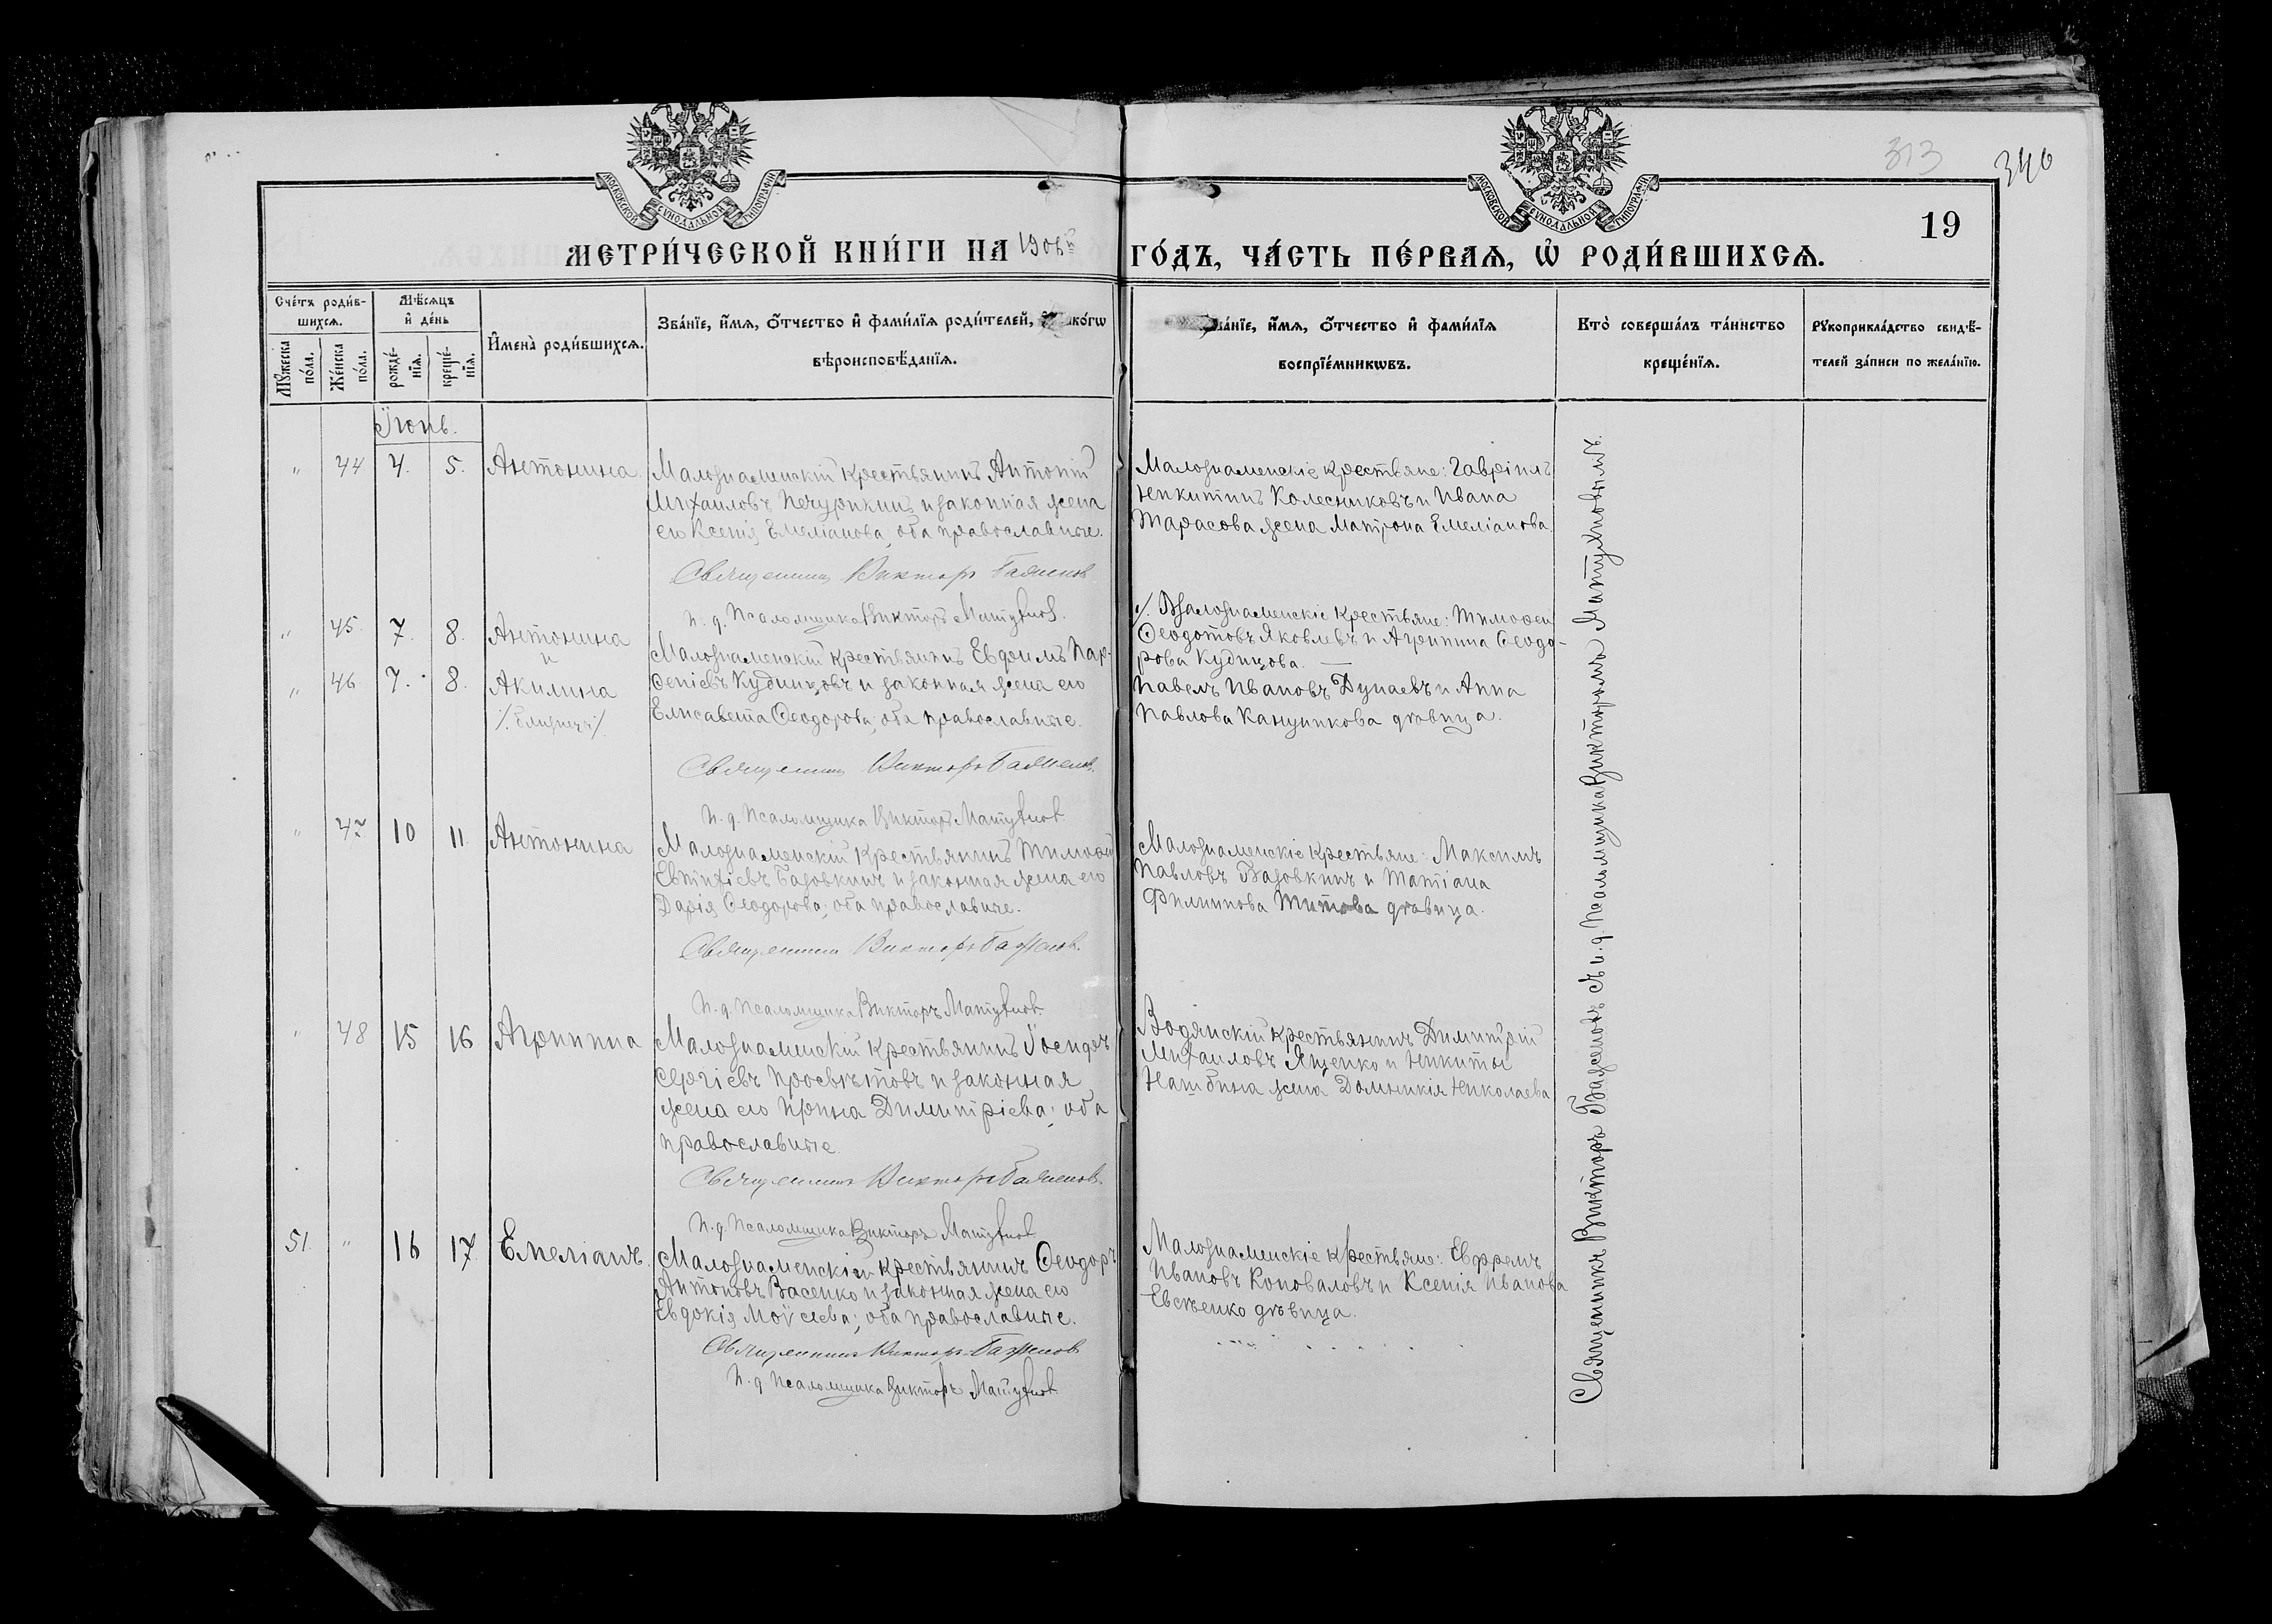 313
346
19
МОСКОВСКОЙ СѴНОДАЛЬНОЙ ТИПОГРАФІИ
МОСКОВСКОЙ СѴНОДАЛЬНОЙ ТИПОГРАФІИ
МЕТРИ́ЧЕСКОЙ КНИ́ГИ НА 1906й ГО́ДЪ, ЧА́СТЬ ПЕ́РВАѦ, Ѡ҆ РОДИ́ВШИХСѦ.
Сче́тъ роди́в-
шихсѧ.
Мꙋ́жеска по́ла.
Же́нска по́ла.
Мѣ́сѧцъ
и҆ де́нь
рожде́-
нїѧ.
креще́-
нїѧ.
И҆мена̀ роди́вшихсѧ.
Зва́нїе, и҆́мѧ, ѻ҆́тчество и҆ фами́лїѧ роди́телей, и҆ како́гѡ
вѣроисповѣ́данїѧ.
Зва́нїе, и҆́мѧ, ѻ҆́тчество и҆ фами́лїѧ
воспрїе́мникѡвъ.
Кто̀ соверша́лъ та́инство
креще́нїѧ.
Рꙋкоприкла́дство свидѣ́-
телей за́писи по жела́нїю.
Іюнь.
" 44 4. 5. Антонина.
Малознаменскій крестьянинъ Антоній
Михаиловъ Печурикинъ и законная жена
его Ксенія Емеліанова, оба православные.
Священникъ Викторъ Баженов
И. д. Псаломщика Викторъ Матуѣнов.
Малознаменскіе крестьяне: Гавріилъ
Никитинъ Колесниковъ и Ивана
Тарасова жена Матрона Емеліанова.
" 45. 7. 8. Антонина
и
" 46. 7. 8. Акилина
/. Близнецы /.
Малознаменскій крестьянинъ Евѳимъ Пар-
ѳеніевъ Кудиновъ и законная жена его
Елисавета Ѳеодорова; оба православные.
Священникъ Викторъ Баженов.
И. д. Псаломщика Викторъ Матуѣнов
Малознаменскіе крестьяне: Тимоѳей
Ѳеодотовъ Яковлевъ и Агрипина Ѳеодо-
рова Кудинова. —
Павелъ Ивановъ Дунаевъ и Анна
Павлова дѣвица.
" 47 10 11. Антонина
Малознаменскій крестьянинъ Тимоѳей
Евтихіевъ Базовкинъ и законная жена его
Дарія Ѳеодорова; оба православные.
Священникъ Викторъ Баженов.
И. д. Псаломщика Викторъ Матуѣнов
Малознаменскіе крестьяне: Максимъ
Павловъ Базовкинъ и Татіана
Филиппова Титова дѣвица.
" 48 15 16 Агрипина
Малознаменскій крестьянинъ Іосифъ
Сергіевъ Просвѣтовъ и законная
жена его Ирина Димитріева; оба
православные
Священникъ Викторъ Баженов.
И. д. Псаломщика Викторъ Матуѣнов
Водянскій крестьянинъ Димитрій
Михаиловъ Ященко и Никиты
жена Домникія Николаева
51. " 16 17 Емеліанъ.
Малознаменскій крестьянинъ Ѳеодоръ
Антоновъ Васенко и законная жена его
Евдокія Моѵсеева; оба православные.
Священникъ Викторъ Баженов
И. д. Псаломщика Викторъ Матуѣнов
Малознаменскіе крестьяне: Ефремъ
Ивановъ Коноваловъ и Ксенія Иванова
Евсѣенко дѣвица.
Священникъ Викторъ Баженовъ съ и. д. Псаломщика Викторомъ Матуѣновымъ.